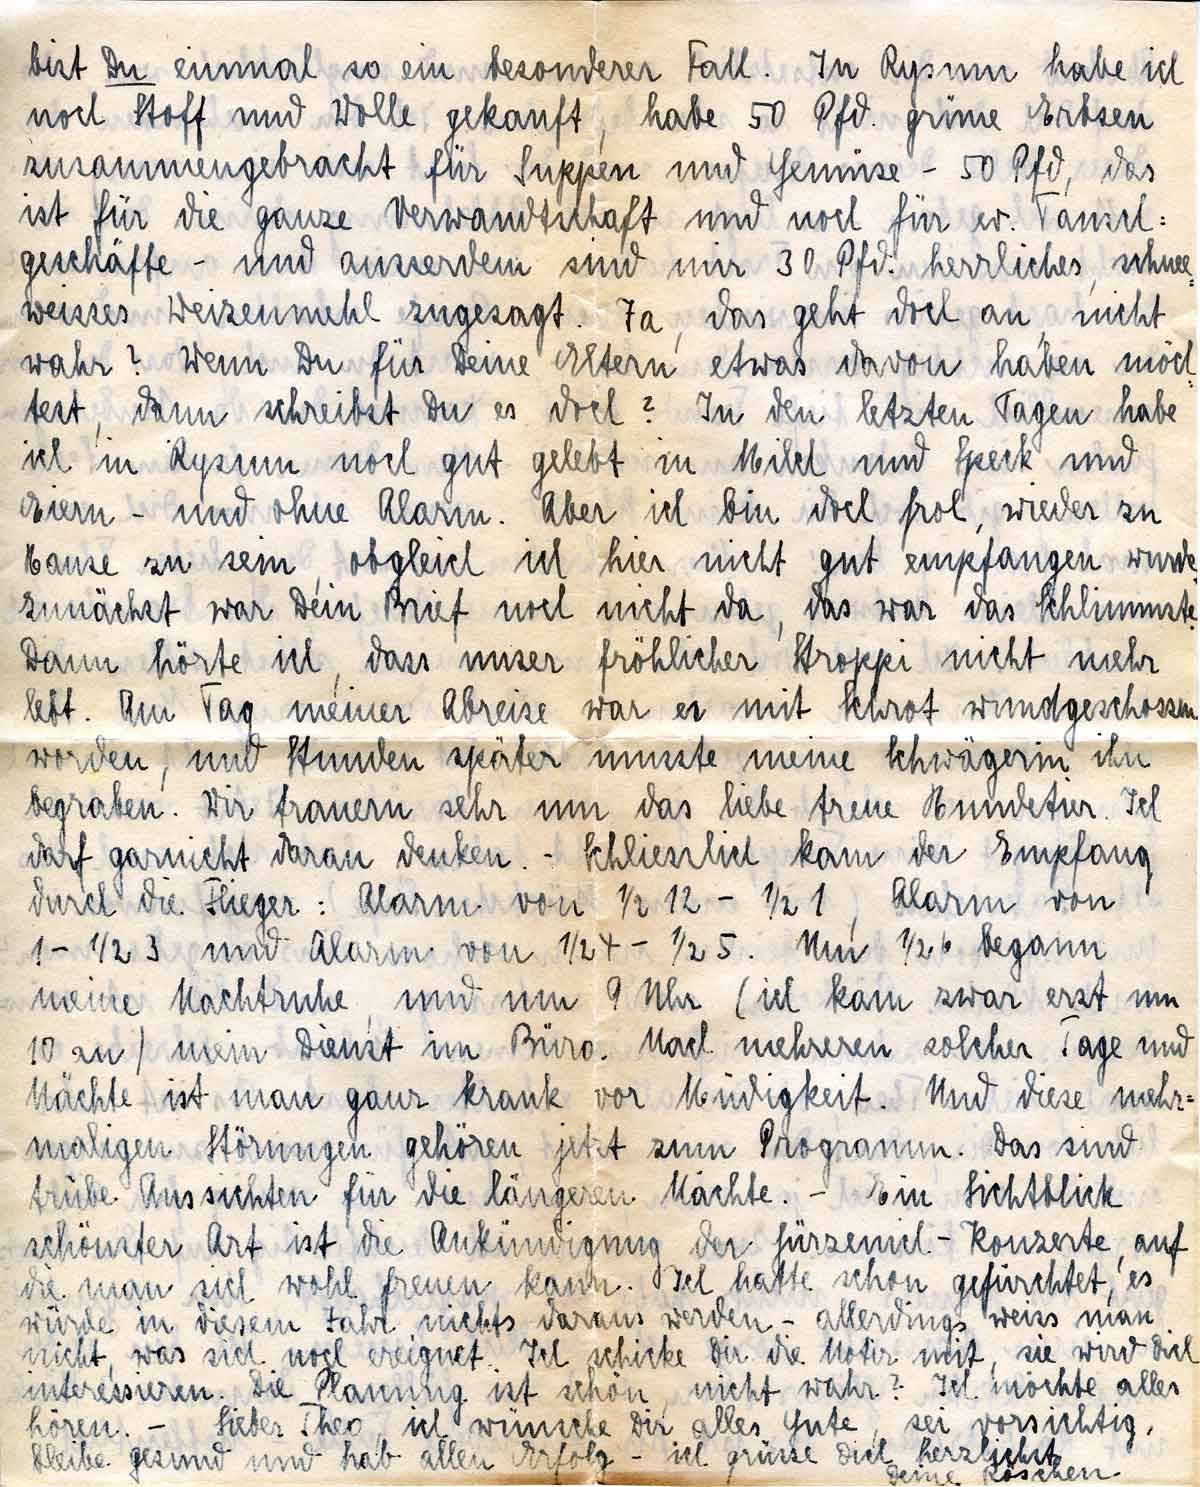 bist Du einmal so ein besonderer Fall. In Rysum habe ich
noch Stoff und Wolle gekauft, habe 50 Pfd. grüne Erbsen
zusammengebracht für Suppen und Gemüse - 50 Pfd, das
ist für die ganze Verwandtschaft und noch für ev. Tausch=
geschäfte - und ausserdem sind mir 30 Pfd. herrliches, schnee=
weisses Weizenmehl zugesagt. Ja, das geht doch an, nicht
wahr? Wenn Du für Deine Eltern etwas davon haben möch=
test, dann schreibst Du es doch? In den letzten Tagen habe
ich in Rysum noch gut gelebt in Milch und Speck und
Eiern - und ohne Alarm. Aber ich bin doch froh, wieder zu
Hause zu sein, obgleich ich hier nicht gut empfangen wurde.
Zunächst war Dein Brief noch nicht da, das war das Schlimmste.
Dann hörte ich, dass unser fröhlicher Stroppi nicht mehr
lebt. Am Tag meiner Abreise war er mit Schrot wundgeschossen
worden, und Stunden später musste meine Schwägerin ihn
begraben. Wir trauern sehr um das liebe treue Hundetier. Ich
darf garnicht daran denken. - Schliesslich kam der Empfang
durch die Flieger: Alarm von 1/2 12 - 1/2 1, Alarm von
1 - 1/2 3 und Alarm von 1/2 4 - 1/2 5. Um 1/2 6 begann
meine Nachtruhe, und um 9 Uhr (ich kam zwar erst um
10 an) mein Dienst im Büro. Nach mehreren solcher Tage und
Nächte ist man ganz krank vor Müdigkeit. Und diese mehr=
maligen Störungen gehören jetzt zum Programm. Das sind
trübe Aussichten für die längeren Nächte. - Ein Lichtblick
schönster Art ist die Ankündigung der Gürzenich-Konzerte, auf
die man sich wohl freuen kann. Ich hatte schon gefürchtet, es
würde in diesem Jahr nichts daraus werden - allerdings weiss man
nicht, was sich noch ereignet. Ich schicke Dir die Notiz mit, sie wird Dich
interessieren. Die Planung ist schön, nicht wahr? Ich möchte alles
hören. - Lieber Theo, ich wünsche Dir alles Gute, sei vorsichtig,
bleibe gesund und hab allen Erfolg - ich grüsse Dich herzlichst
Deine Röschen.